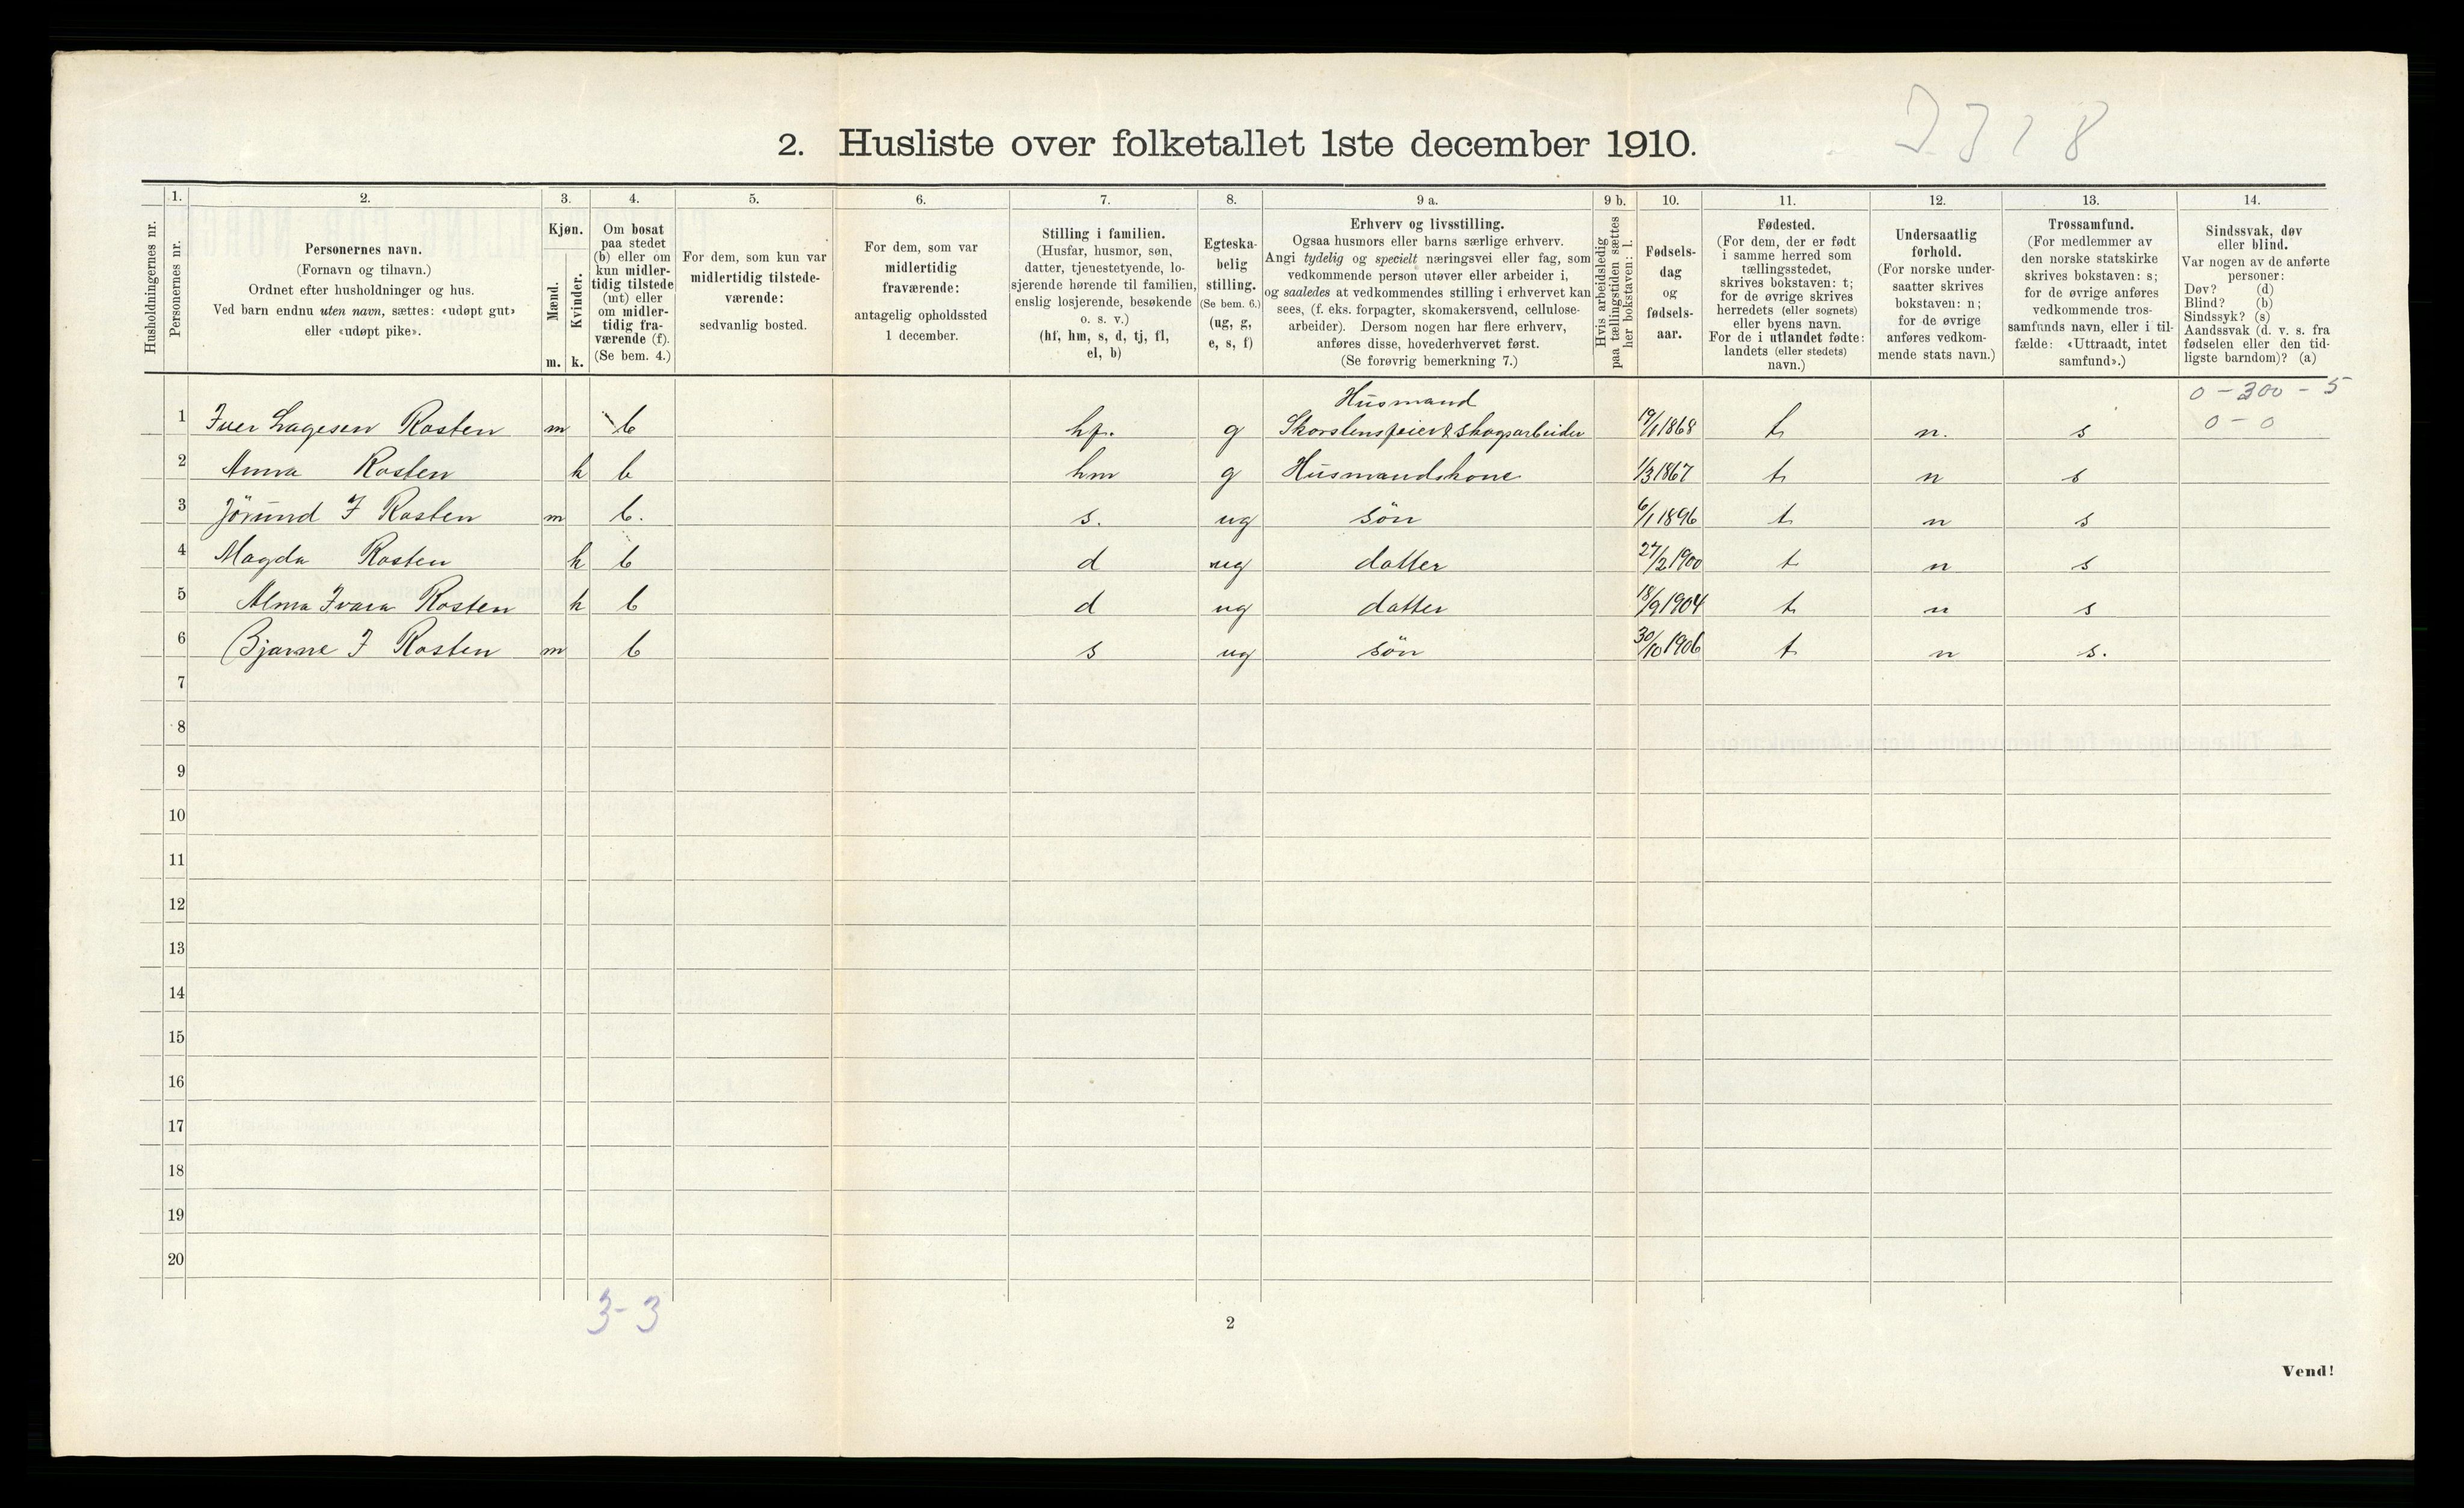 2. Husliste over folketallet 1ste december 1910.
1. 2. 3. 4. 5. 6. 7. 8. 9 a. 9 b. 10. 11. 12. 13. 14.
Husholdningernes nr.
Personernes nr.
Personernes navn.
(Fornavn og tilnavn.)
Ordnet efter husholdninger og hus.
Ved barn endnu uten navn, sættes: «udøpt gut»
eller «udøpt pike».
Kjøn.
Mænd.
Kvinder.
m. k.
Om bosat
paa stedet
(b) eller om
kun midler-
tidig tilstede
(mt) eller
om midler-
tidig fra-
værende (f).
(Se bem. 4.)
For dem, som kun var
midlertidig tilstede-
værende:
sedvanlig bosted.
For dem, som var
midlertidig
fraværende:
antagelig opholdssted
1 december.
Stilling i familien.
(Husfar, husmor, søn,
datter, tjenestetyende, lo-
sjerende hørende til familien,
enslig losjerende, besøkende
o. s. v.)
(hf, hm, s, d, tj, fl,
el, b)
Egteska-
belig
stilling.
(Se bem. 6.)
(ug, g,
e, s, f)
Erhverv og livsstilling.
Ogsaa husmors eller barns særlige erhverv.
Angi tydelig og specielt næringsvei eller fag, som
vedkommende person utøver eller arbeider i,
og saaledes at vedkommendes stilling i erhvervet kan
sees, (f. eks. forpagter, skomakersvend, cellulose-
arbeider). Dersom nogen har flere erhverv,
anføres disse, hovederhvervet først.
(Se forøvrig bemerkning 7.)
Hvis arbeidsledig
paa tællingstiden sættes
her bokstaven: l.
Fødsels-
dag
og
fødsels-
aar.
Fødested.
(For dem, der er født
i samme herred som
tællingsstedet,
skrives bokstaven: t;
for de øvrige skrives
herredets (eller sognets)
eller byens navn.
For de i utlandet fødte:
landets (eller stedets)
navn.)
Undersaatlig
forhold.
(For norske under-
saatter skrives
bokstaven: n;
for de øvrige
anføres vedkom-
mende stats navn.)
Trossamfund.
(For medlemmer av
den norske statskirke
skrives bokstaven: s;
for de øvrige anføres
vedkommende tros-
samfunds navn, eller i til-
fælde: «Uttraadt, intet
samfund».)
Sindssvak, døv
eller blind.
Var nogen av de anførte
personer:
Døv? (d)
Blind? (b)
Sindssyk? (s)
Aandssvak (d. v. s. fra
fødselen eller den tid-
ligste barndom)? (a)
Husmand 0 - 300 - 5
1 Iver Lagesen Rosten m b hf. g Skorstensfeier & skogsarbeider 19/1 1868 t n. s 0 - 0
2 Anna Rosten k b hm g Husmandskone 1/3 1867 t n s
3 Jörund I Rosten m b. s. ug sön 6/1 1896 t n s
4 Magda Rosten k b d ug datter 27/2 1900 t n s
5 Alma Ivara Rosten k b d ug datter 18/9 1904 t n s
6 Bjarne I Rosten m b s ug sön 30/10 1906 t n s.
7
8
9
10
11
12
13
14
15
16
17
18
19
20
3-3
2
Vend!